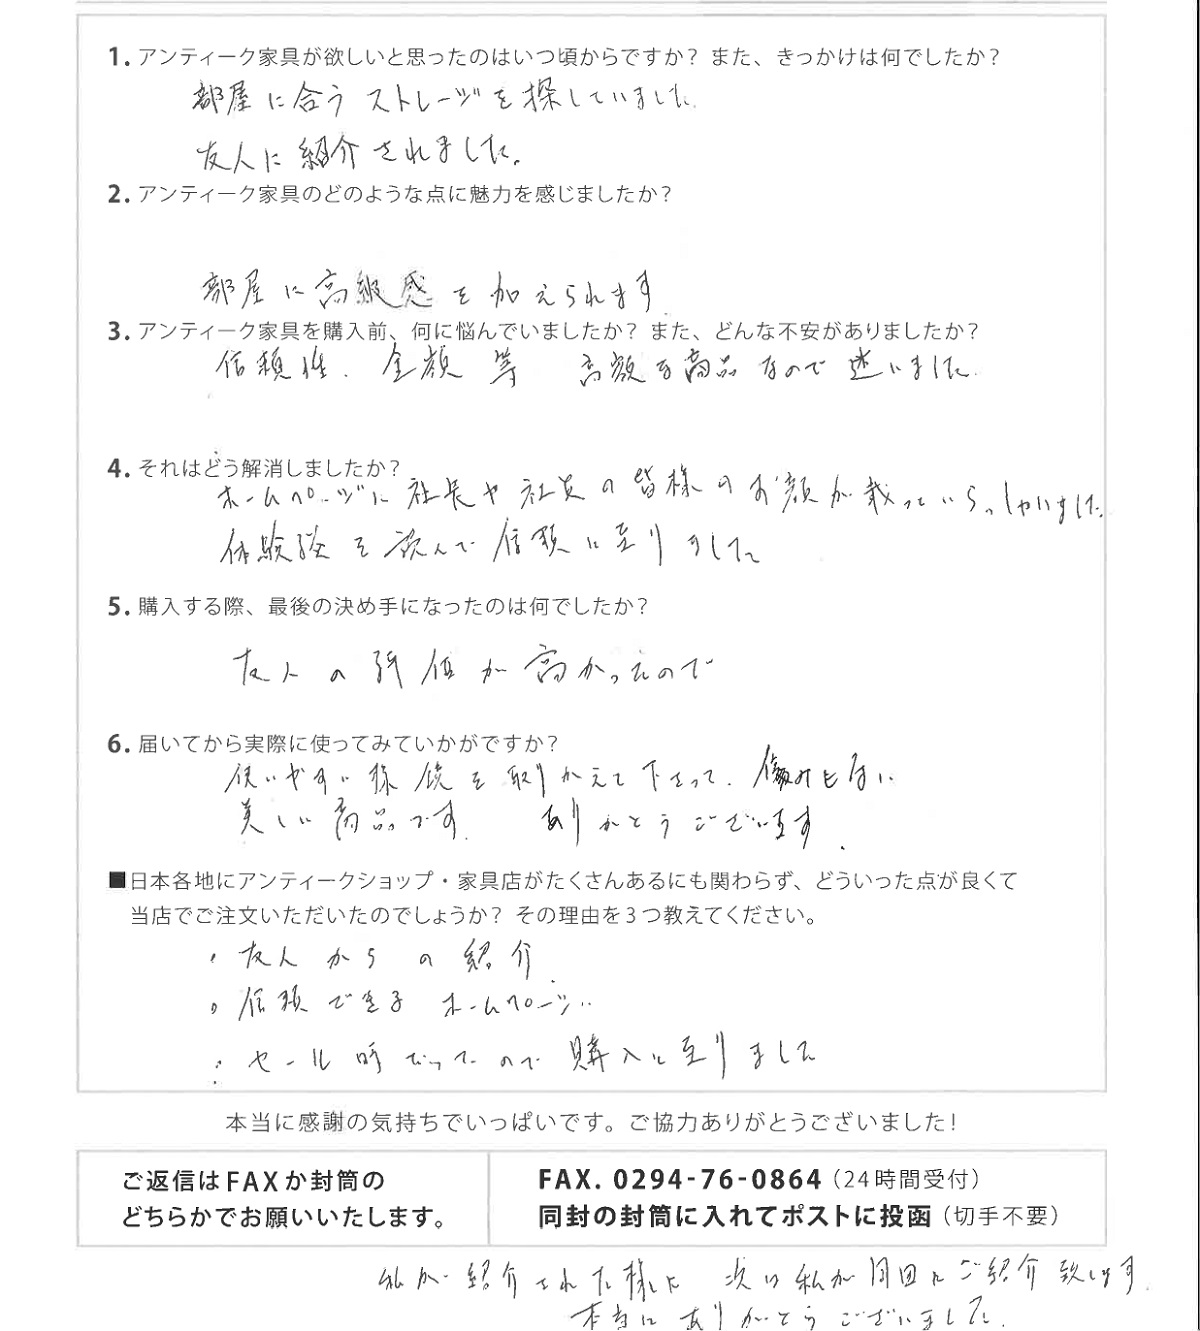 1. アンティーク家具が欲しいと思ったのはいつ頃からですか？ また、きっかけは何でしたか？
部屋に合うストレージを探していました
友人に紹介されました。
2. アンティーク家具のどのような点に魅力を感じましたか？
部屋に高級感を加えられます
3. アンティーク家具を購入前、何に悩んでいましたか？ また、どんな不安がありましたか？
信頼性、金額等 高額な商品なので迷いました
4. それはどう解消しましたか？
ホームページに社長や社員の皆様のお顔が載っていらっしゃいました
体験談を読んで信頼に至りました
5. 購入する際、最後の決め手になったのは何でしたか？
友人の評価が高かったので
6. 届いてから実際に使ってみていかがですか？
使いやすい様 鏡を取りかえて下さって、傷みもない
美しい商品です。 ありがとうございます。
■日本各地にアンティークショップ・家具店がたくさんあるにも関わらず、どういった点が良くて
当店でご注文いただいたのでしょうか？ その理由を3つ教えてください。
・友人からの紹介
・信頼できる ホームページ
・セール時だったので購入に至りました
本当に感謝の気持ちでいっぱいです。ご協力ありがとうございました！
ご返信はFAXか封筒の
どちらかでお願いいたします。
FAX. 0294-76-0864（24時間受付）
同封の封筒に入れてポストに投函（切手不要）
私が紹介された様に 次は私が周囲にご紹介致します
本当にありがとうございました。